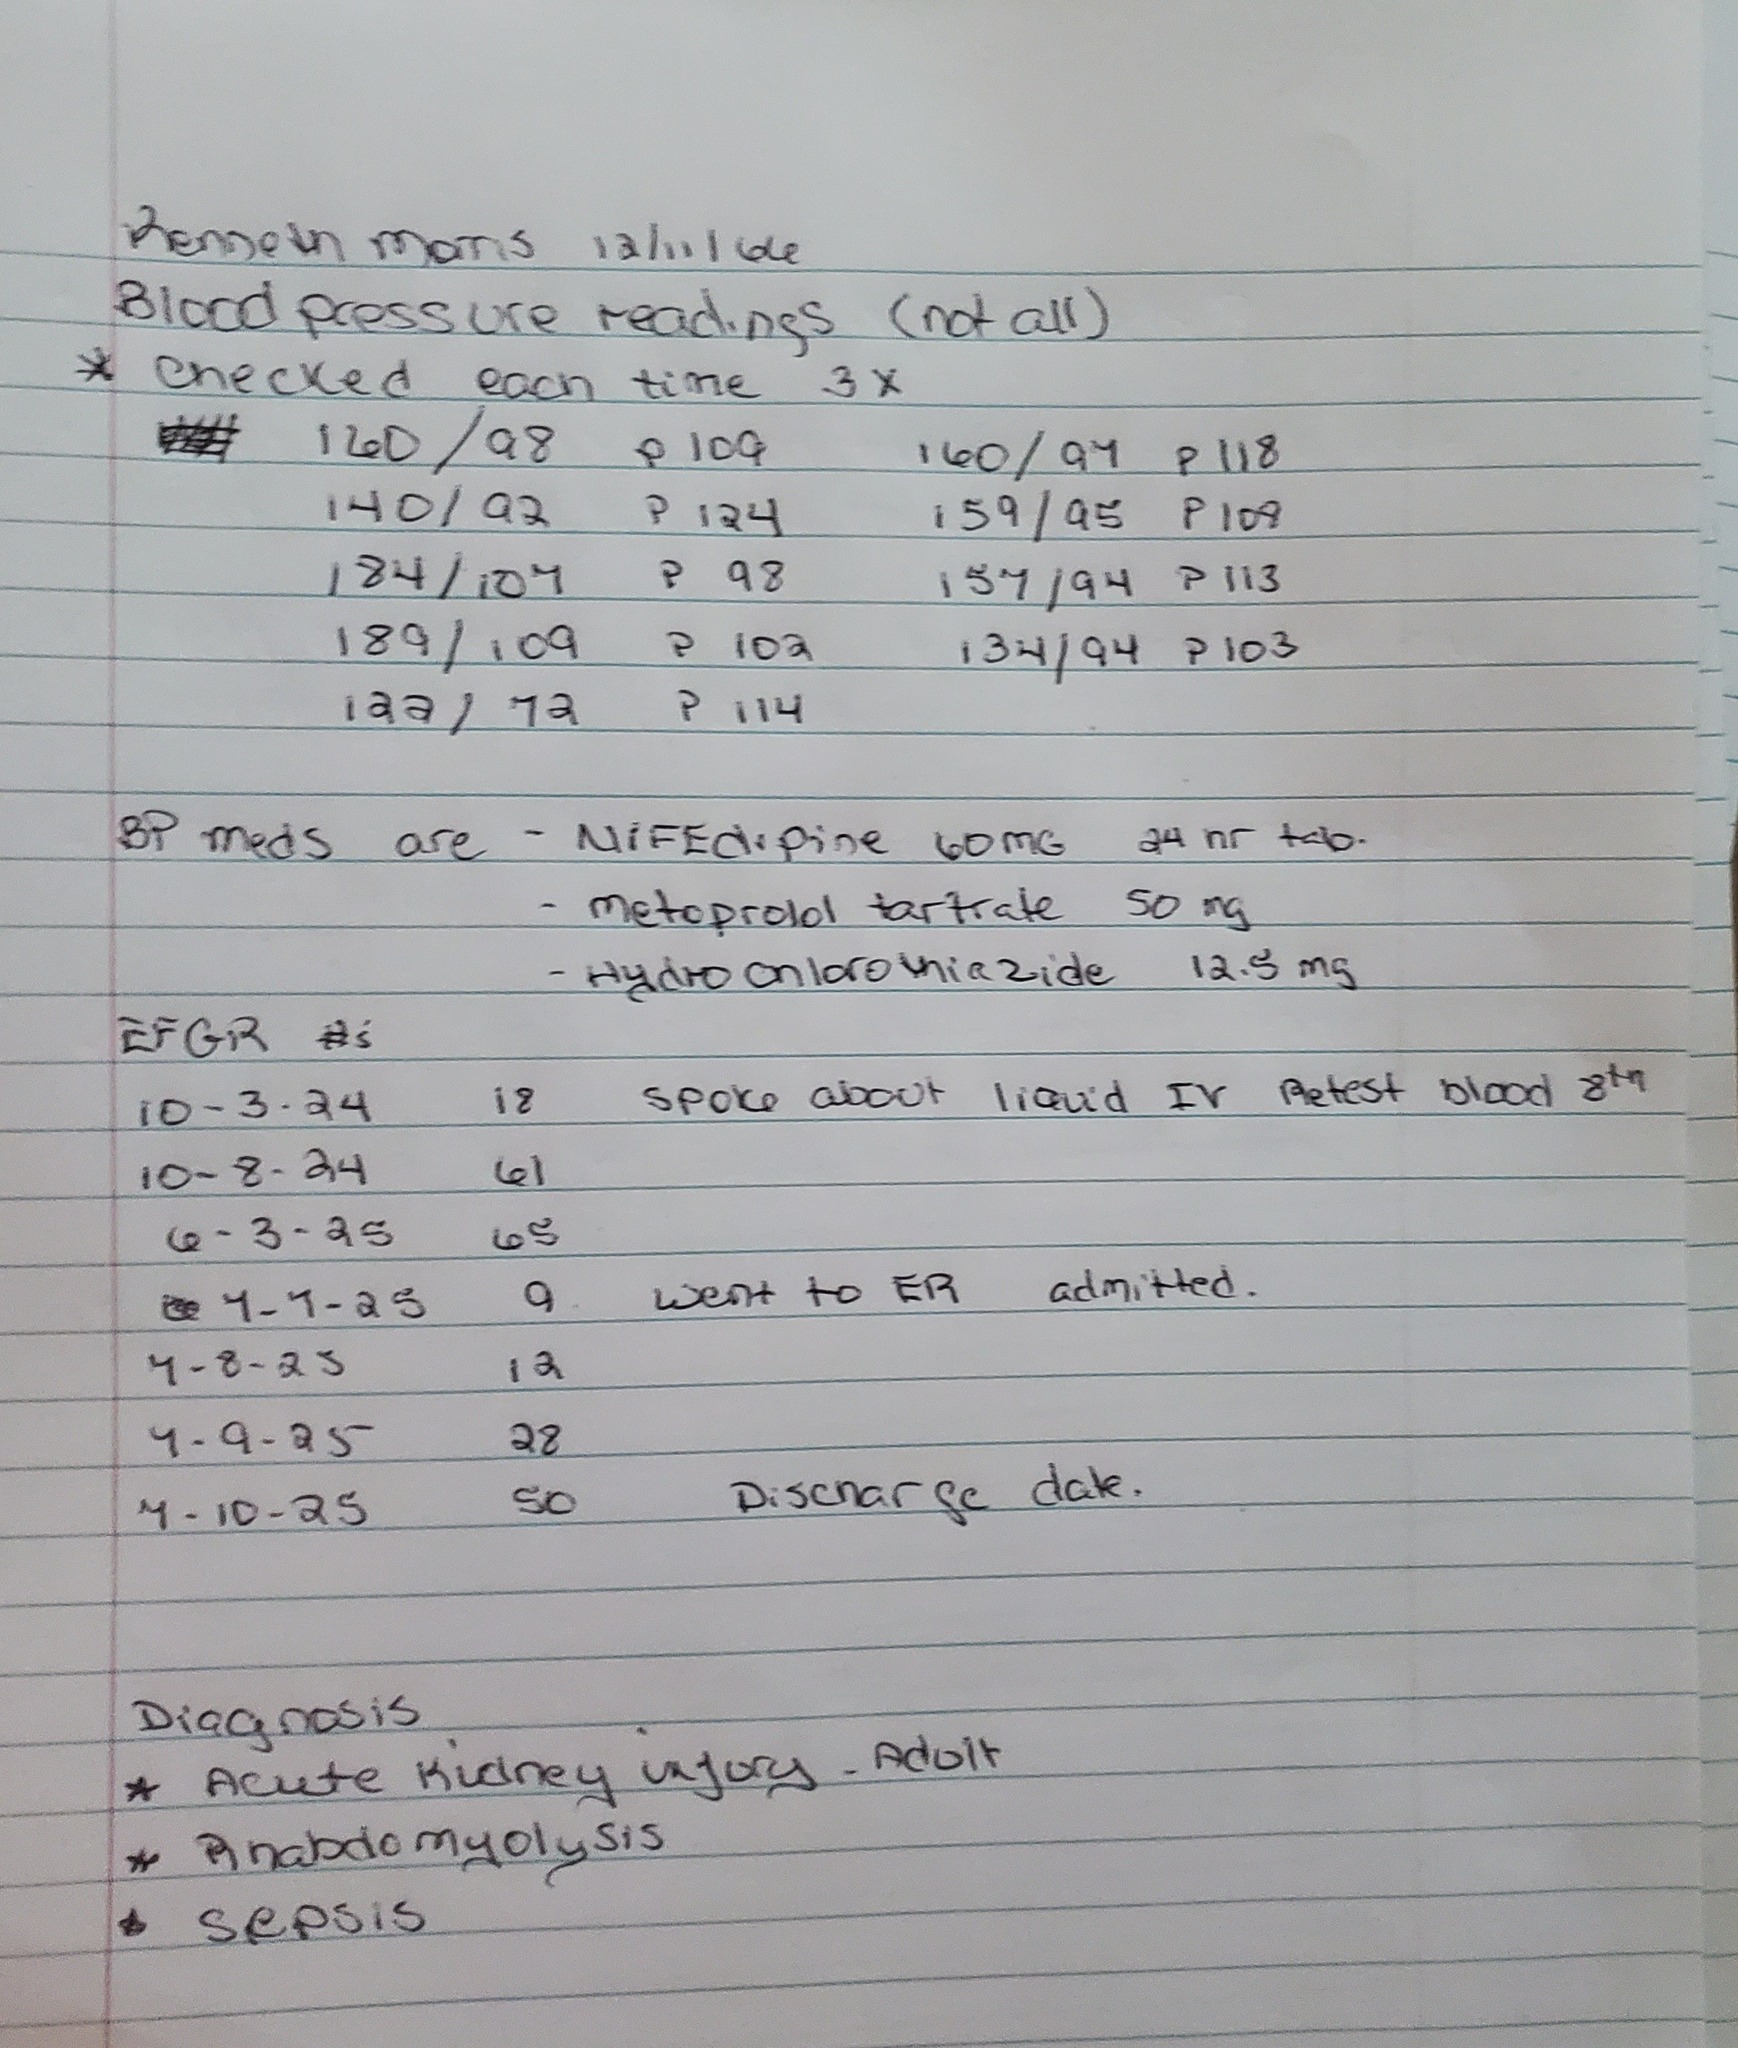 Kenneth Morris 12/11/66
Blood pressure readings (not all)
* checked each time 3x
160/98 P 109 160/97 P 118
140/92 P 124 159/95 P 109
184/107 P 98 157/94 P 113
189/109 P 102 134/94 P 103
122/72 P 114
BP meds are - NiFEdipine 60MG 24 hr tab.
- metoprolol tartrate 50 mg
- Hydrochlorothiazide 12.5 mg
EFGR #s
10-3-24 18 spoke about liquid IV Retest blood 8th
10-8-24 61
6-3-25 65
7-7-25 9 went to ER admitted.
7-8-25 12
7-9-25 28
7-10-25 50 Discharge date.
Diagnosis
* Acute Kidney injury - Adult
* Rhabdomyolysis
* sepsis